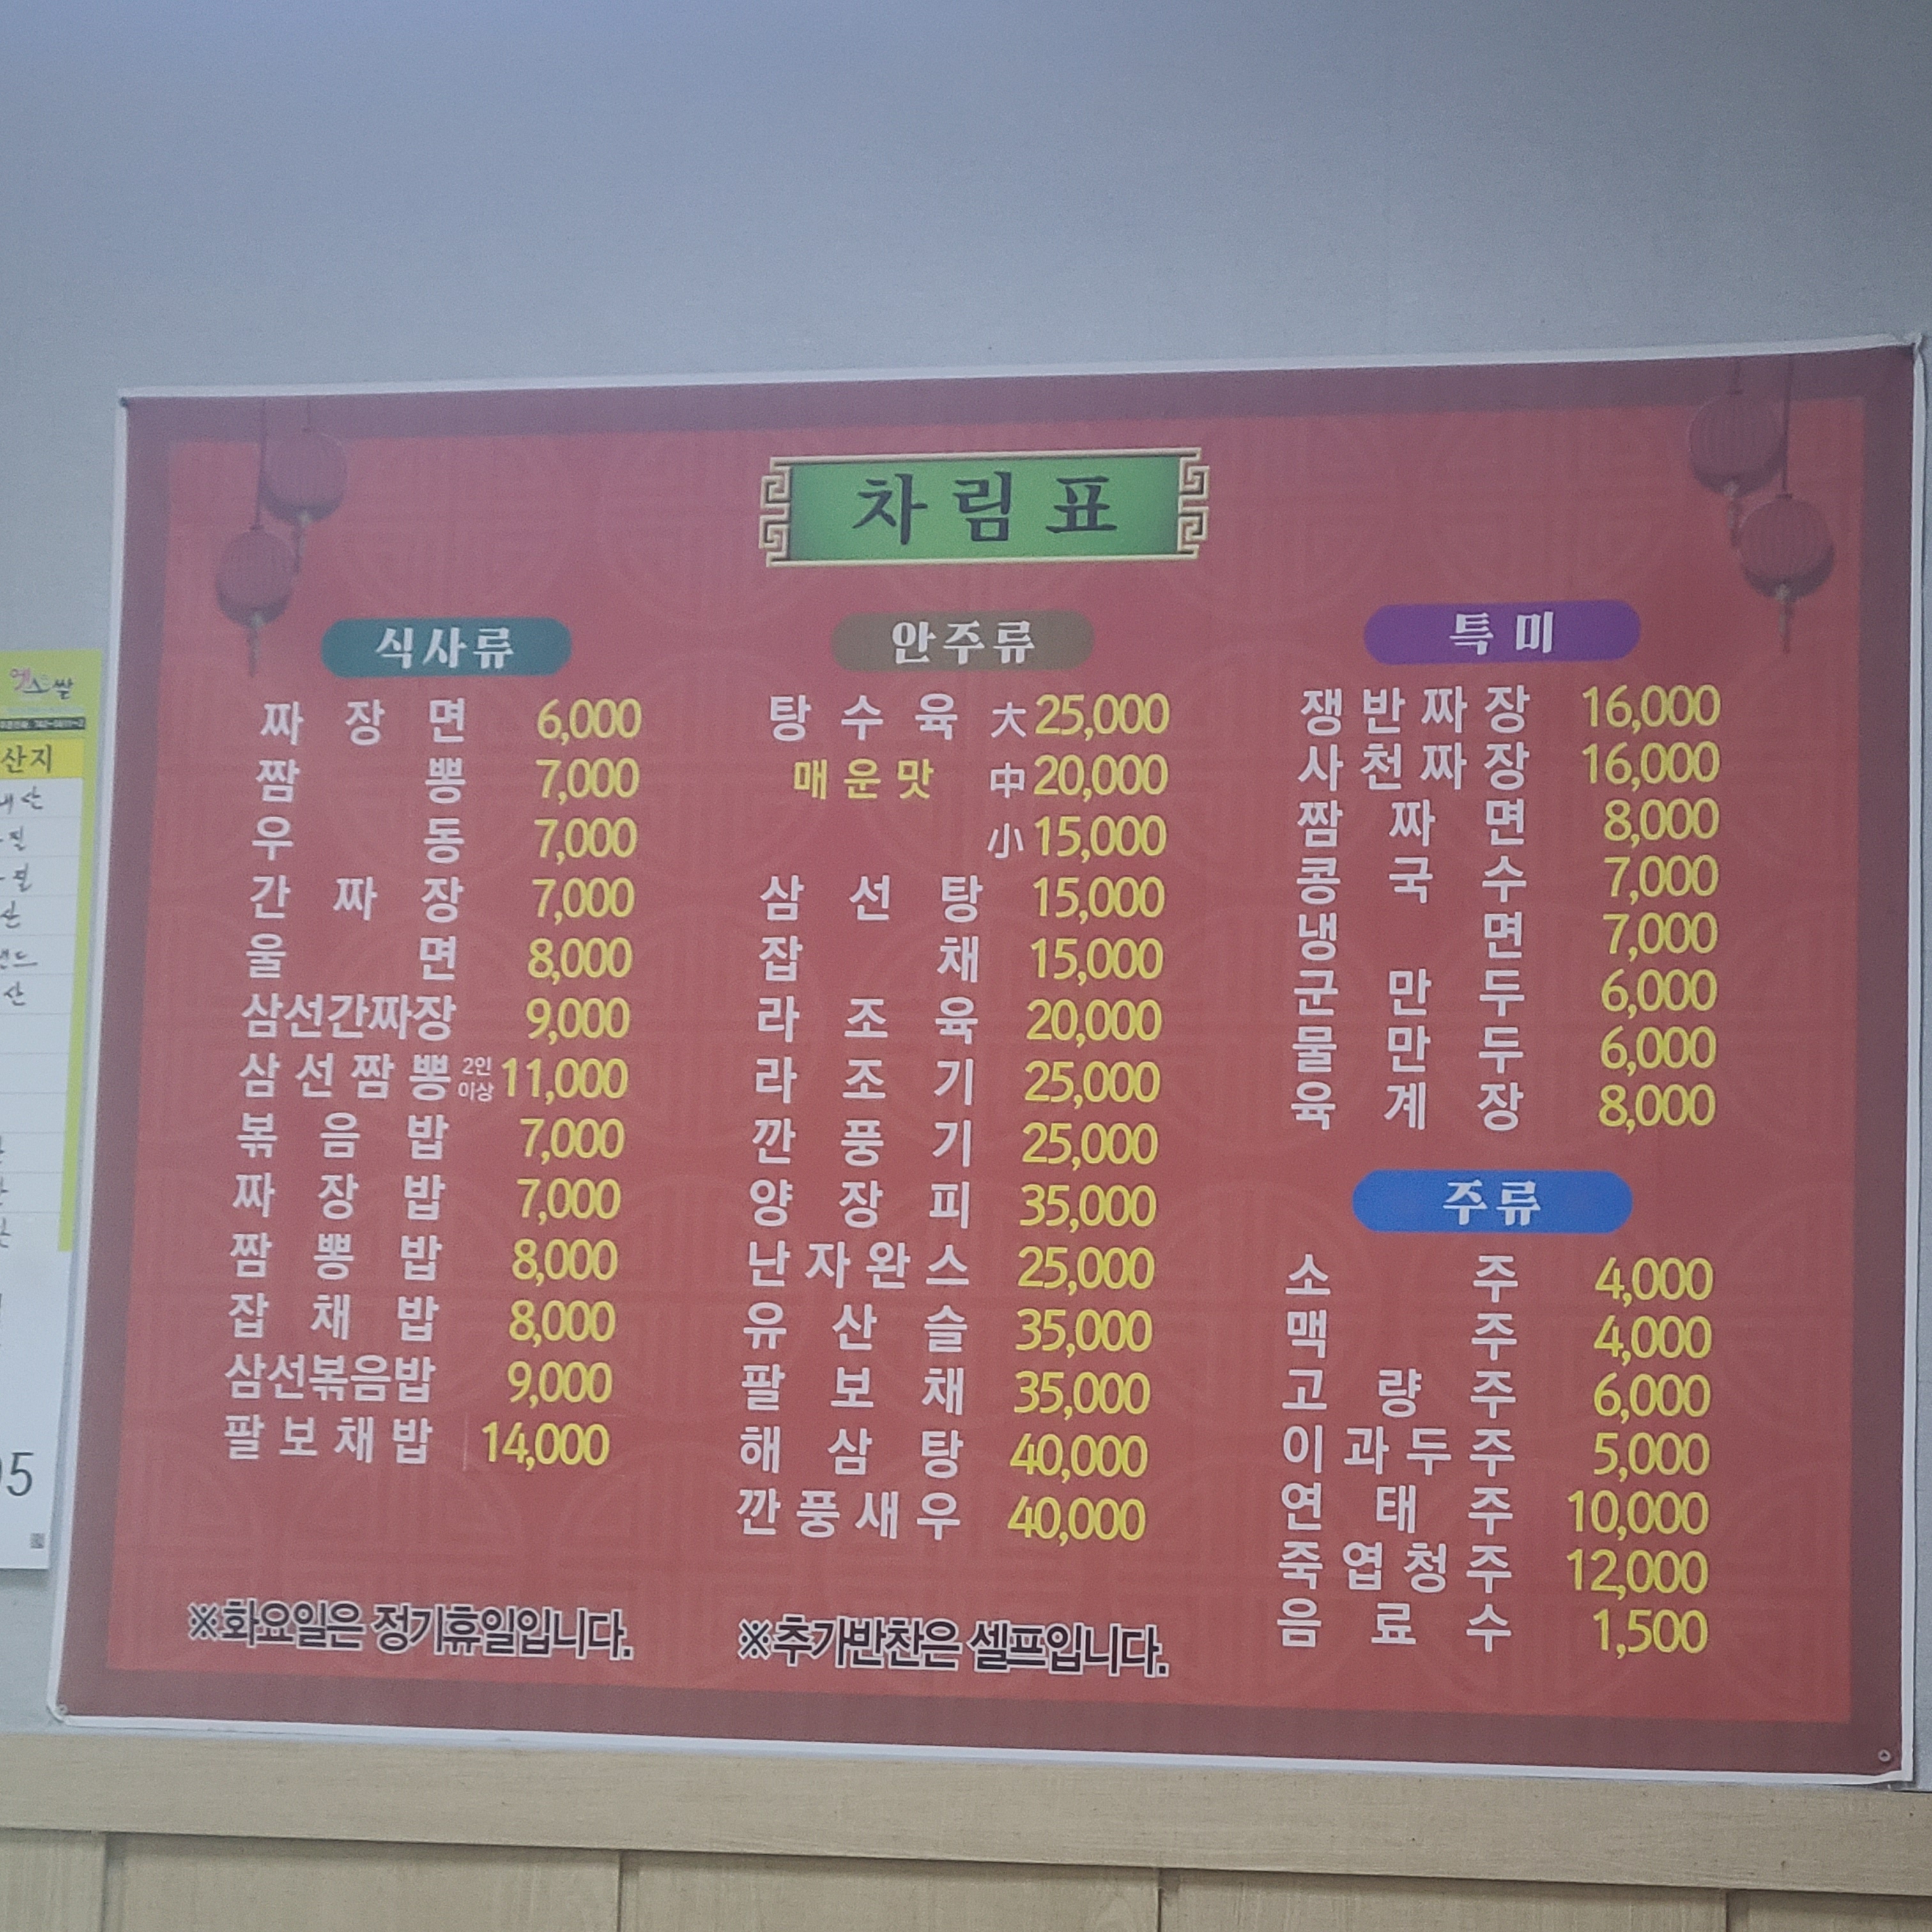 차림표
식사류
짜장면 6,000
짬뽕 7,000
우동 7,000
간짜장 7,000
울면 8,000
삼선간짜장 9,000
삼선짬뽕 2인이상 11,000
볶음밥 7,000
짜장밥 7,000
짬뽕밥 8,000
잡채밥 8,000
삼선볶음밥 9,000
팔보채밥 14,000
※화요일은 정기휴일입니다.
안주류
탕수육 大 25,000
매운맛 中 20,000
小 15,000
삼선탕 15,000
잡채 15,000
라조육 20,000
라조기 25,000
깐풍기 25,000
양장피 35,000
난자완스 25,000
유산슬 35,000
팔보채 35,000
해삼탕 40,000
깐풍새우 40,000
※추가반찬은 셀프입니다.
특미
쟁반짜장 16,000
사천짜장 16,000
짬짜면 8,000
콩국수 7,000
냉면 7,000
군만두 6,000
물만두 6,000
육계장 8,000
주류
소주 4,000
맥주 4,000
고량주 6,000
이과두주 5,000
연태주 10,000
죽엽청주 12,000
음료수 1,500
산지